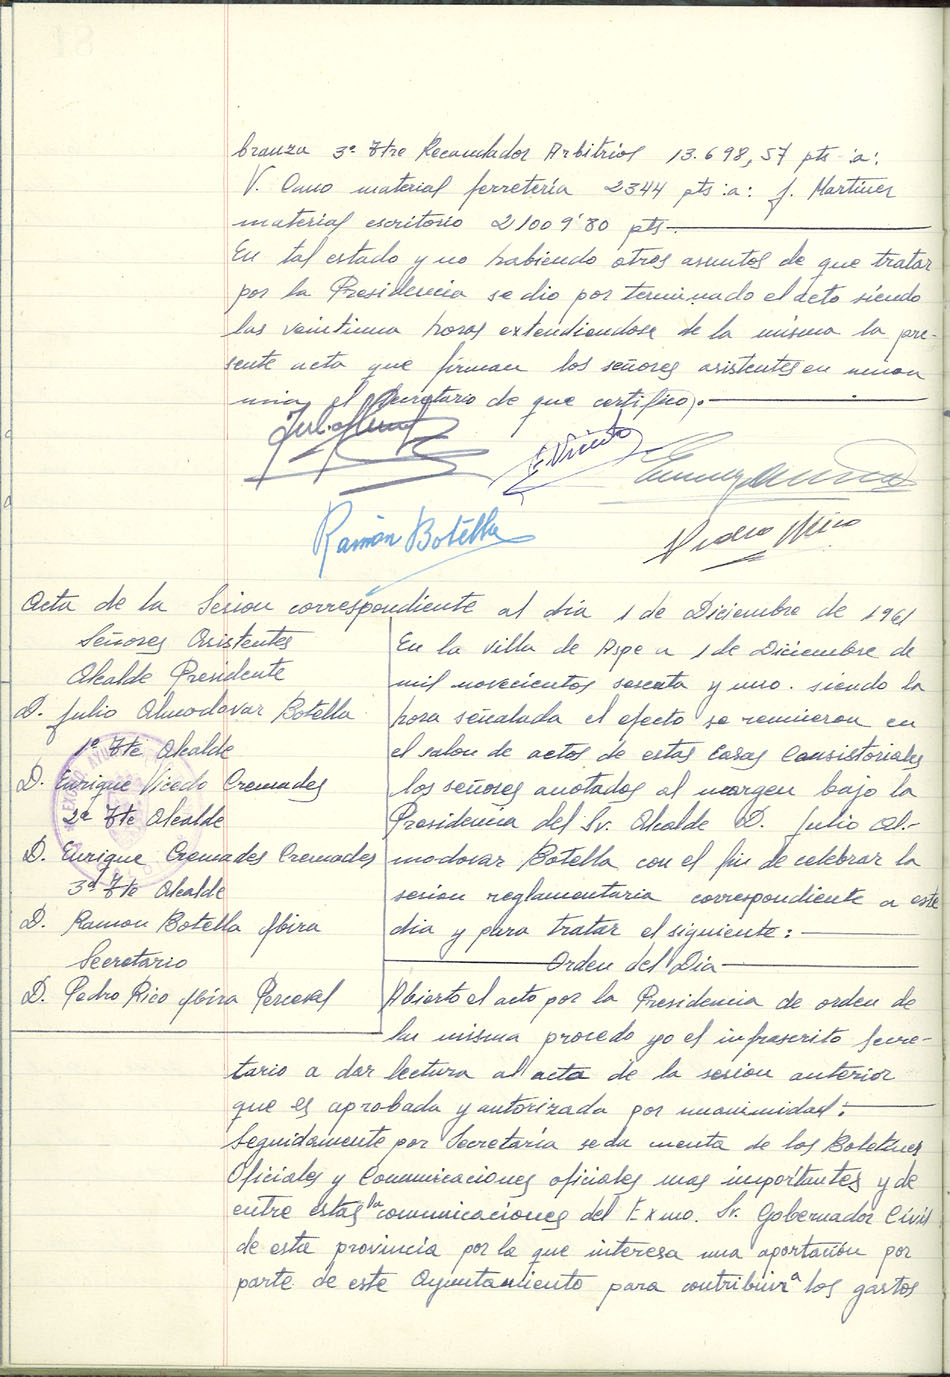 branza 3er Ttre Recaudador Arbitrios 13.698,57 pts :a:
V. Cano material ferretería 2344 pts :a: J. Martinez
material escritorio 21009'80 pts.
En tal estado y no habiendo otros asuntos de que tratar
por la Presidencia se dio por terminado el acto siendo
las veintiuna horas extendiendose de la misma la pre-
sente acta que firman los señores asistentes en union
mia, el Secretario de que certifico.
E. Vicedo
Ramón Botella
Pedro Rico
Acta de la Sesion correspondiente al dia 1 de Diciembre de 1961
Señores Asistentes
Alcalde Presidente
D. Julio Almodovar Botella
1º Tte Alcalde
D. Enrique Vicedo Cremades
2º Tte Alcalde
D. Enrique Cremades Cremades
3º Tte Alcalde
D. Ramon Botella Abira
Secretario
D. Pedro Rico Abira Perceval
En la villa de Aspe a 1 de Diciembre de
mil novecientos sesenta y uno. siendo la
hora señalada el efecto se reunieron en
el salon de actos de estas Casas Consistoriales
los señores anotados al margen bajo la
Presidencia del Sr. Alcalde D. Julio Al-
modovar Botella con el fin de celebrar la
sesion reglamentaria correspondiente a este
dia y para tratar el siguiente:
Orden del Dia
Abierto el acto por la Presidencia de orden de
la misma procedo yo el infrascrito Secre-
tario a dar lectura al acta de la sesion anterior
que es aprobada y autorizada por unanimidad:
Seguidamente por Secretaría se da cuenta de los Boletines
Oficiales y Comunicaciones oficiales mas importantes y de
entre estas la comunicaciones del Exmo. Sr. Gobernador Civil
de esta provincia por la que interesa una aportación por
parte de este Ayuntamiento para contribuir a los gastos